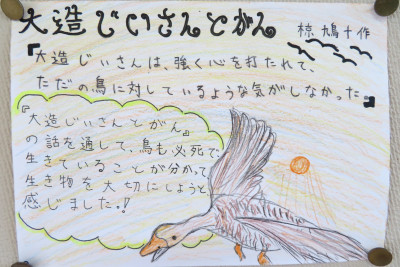 大造じいさんとがん 椋鳩十作
『大造じいさんは、強く心を打たれて、
ただの鳥に対しているような気がしなかった。』
『大造じいさんとがん』
の話を通して、鳥も必死で、
生きていることが分かって
生き物を大切にしようと
感じました！